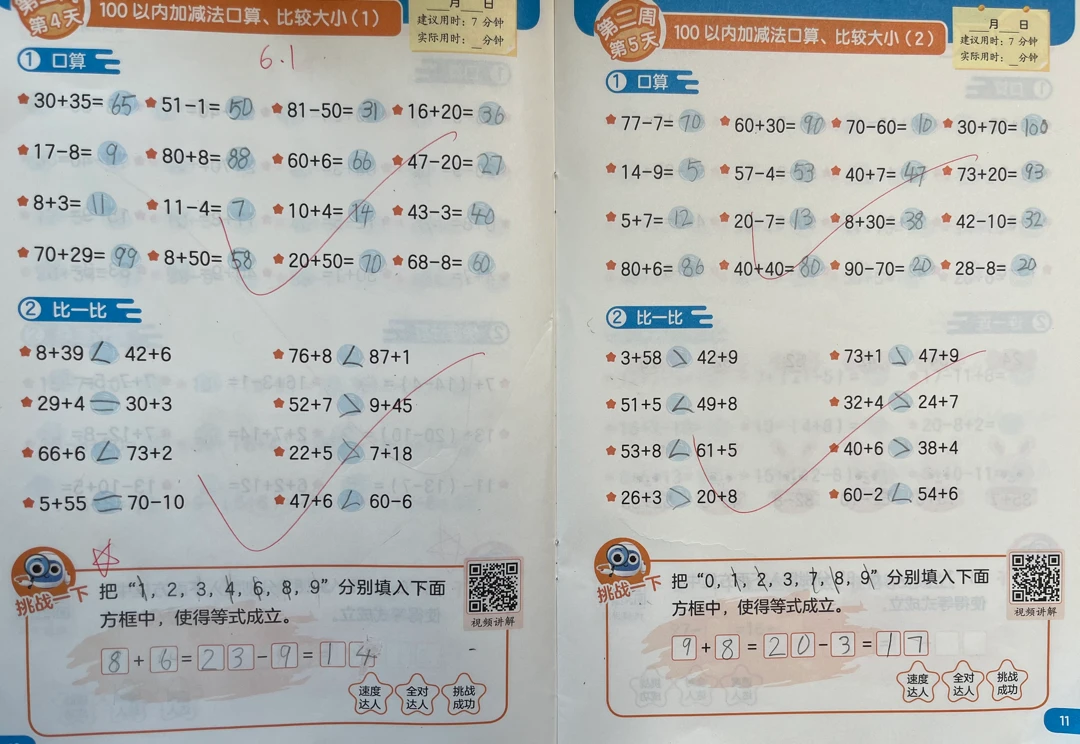 第4天
100以内加减法口算、比较大小（1）
月 日
建议用时：7分钟
实际用时：__分钟
6.1
① 口算
30+35=65 51-1=50 81-50=31 16+20=36
17-8=9 80+8=88 60+6=66 47-20=27
8+3=11 11-4=7 10+4=14 43-3=40
70+29=99 8+50=58 20+50=70 68-8=60
② 比一比
8+39<42+6 76+8<87+1
29+4=30+3 52+7>9+45
66+6<73+2 22+5>7+18
5+55=70-10 47+6<60-6
挑战一下
把“1，2，3，4，6，8，9”分别填入下面
方框中，使得等式成立。
视频讲解
8+6=23-9=14
速度达人 全对达人 挑战成功
第二周
第5天
100以内加减法口算、比较大小（2）
月 日
建议用时：7分钟
实际用时：__分钟
① 口算
77-7=70 60+30=90 70-60=10 30+70=100
14-9=5 57-4=53 40+7=47 73+20=93
5+7=12 20-7=13 8+30=38 42-10=32
80+6=86 40+40=80 90-70=20 28-8=20
② 比一比
3+58>42+9 73+1>47+9
51+5<49+8 32+4>24+7
53+8<61+5 40+6>38+4
26+3>20+8 60-2<54+6
挑战一下
把“0，1，2，3，7，8，9”分别填入下面
方框中，使得等式成立。
视频讲解
9+8=20-3=17
速度达人 全对达人 挑战成功
11